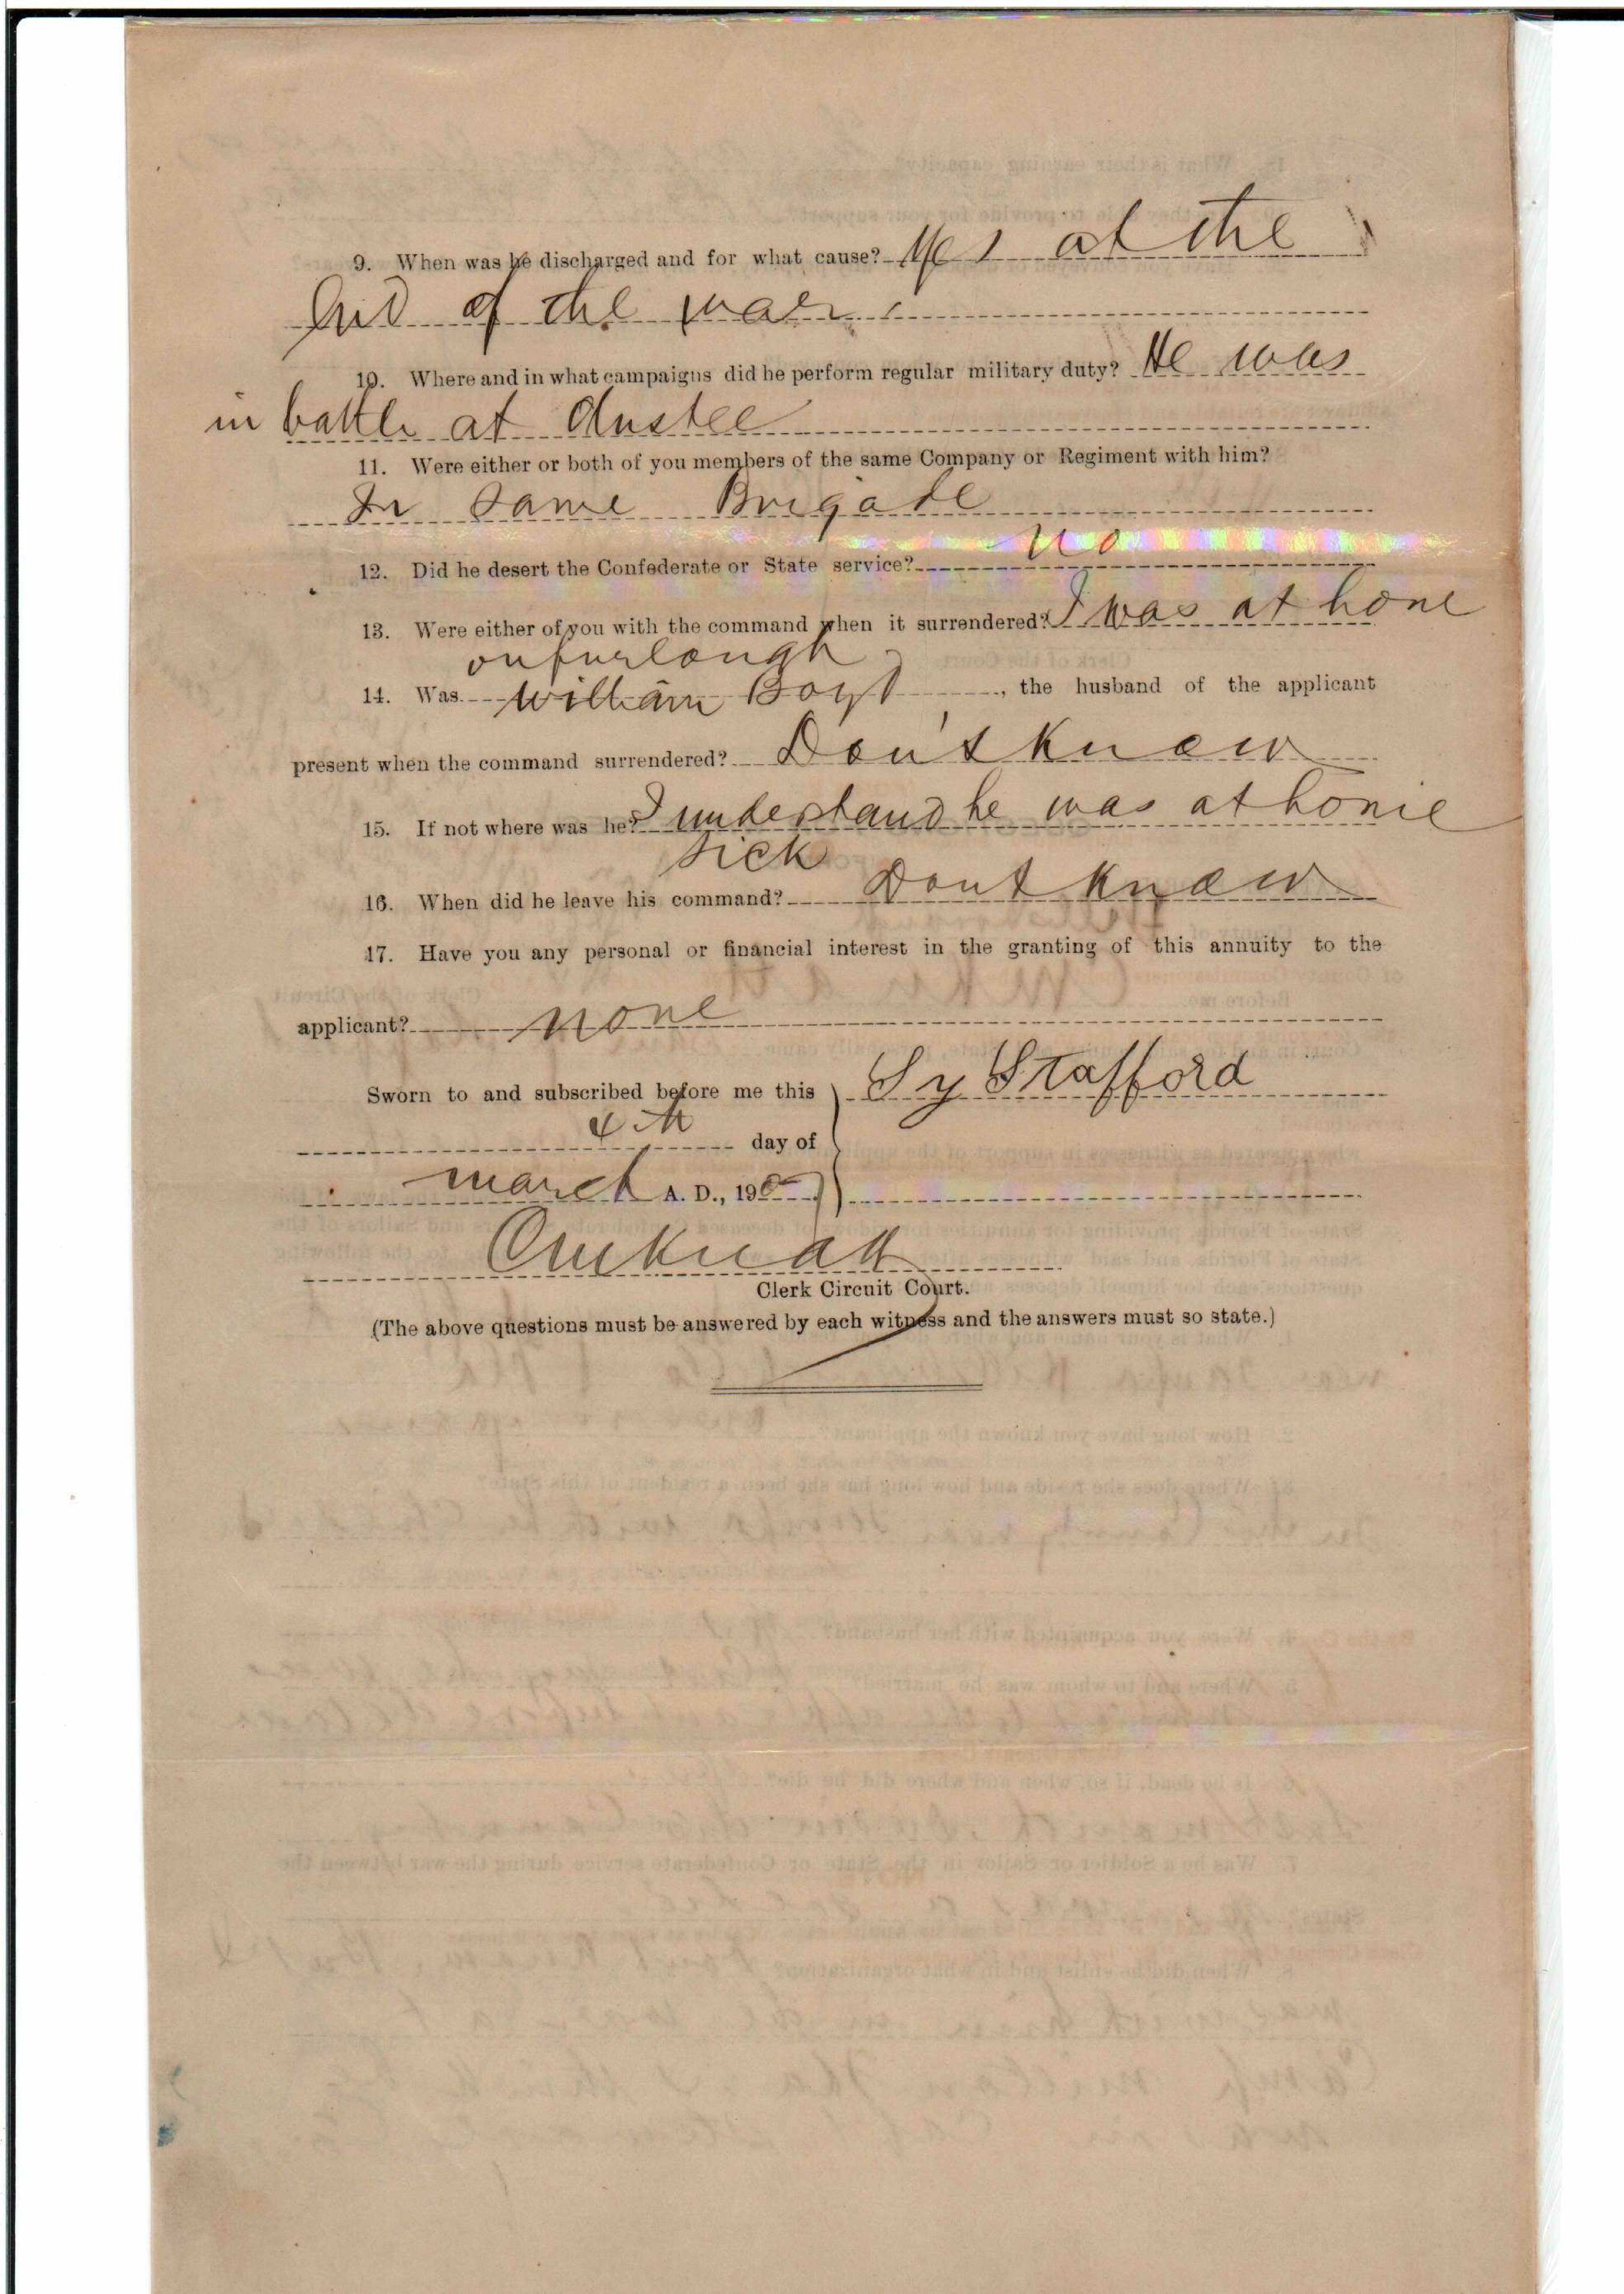 9. When was he discharged and for what cause? Yes at the
End of the war
10. Where and in what campaigns did he perform regular military duty? He was
in battle at Olustee
11. Were either or both of you members of the same Company or Regiment with him?
In Same Brigade
12. Did he desert the Confederate or State service? No
13. Were either of you with the command when it surrendered? I was at home
on furlough
14. Was William Boyt, the husband of the applicant
present when the command surrendered? Don't Know
15. If not where was he? I understand he was at home
Sick
16. When did he leave his command? Dont Know
17. Have you any personal or financial interest in the granting of this annuity to the
applicant? none
Sworn to and subscribed before me this S y Stafford
4th day of
march A. D., 190
Clerk Circuit Court.
(The above questions must be answered by each witness and the answers must so state.)